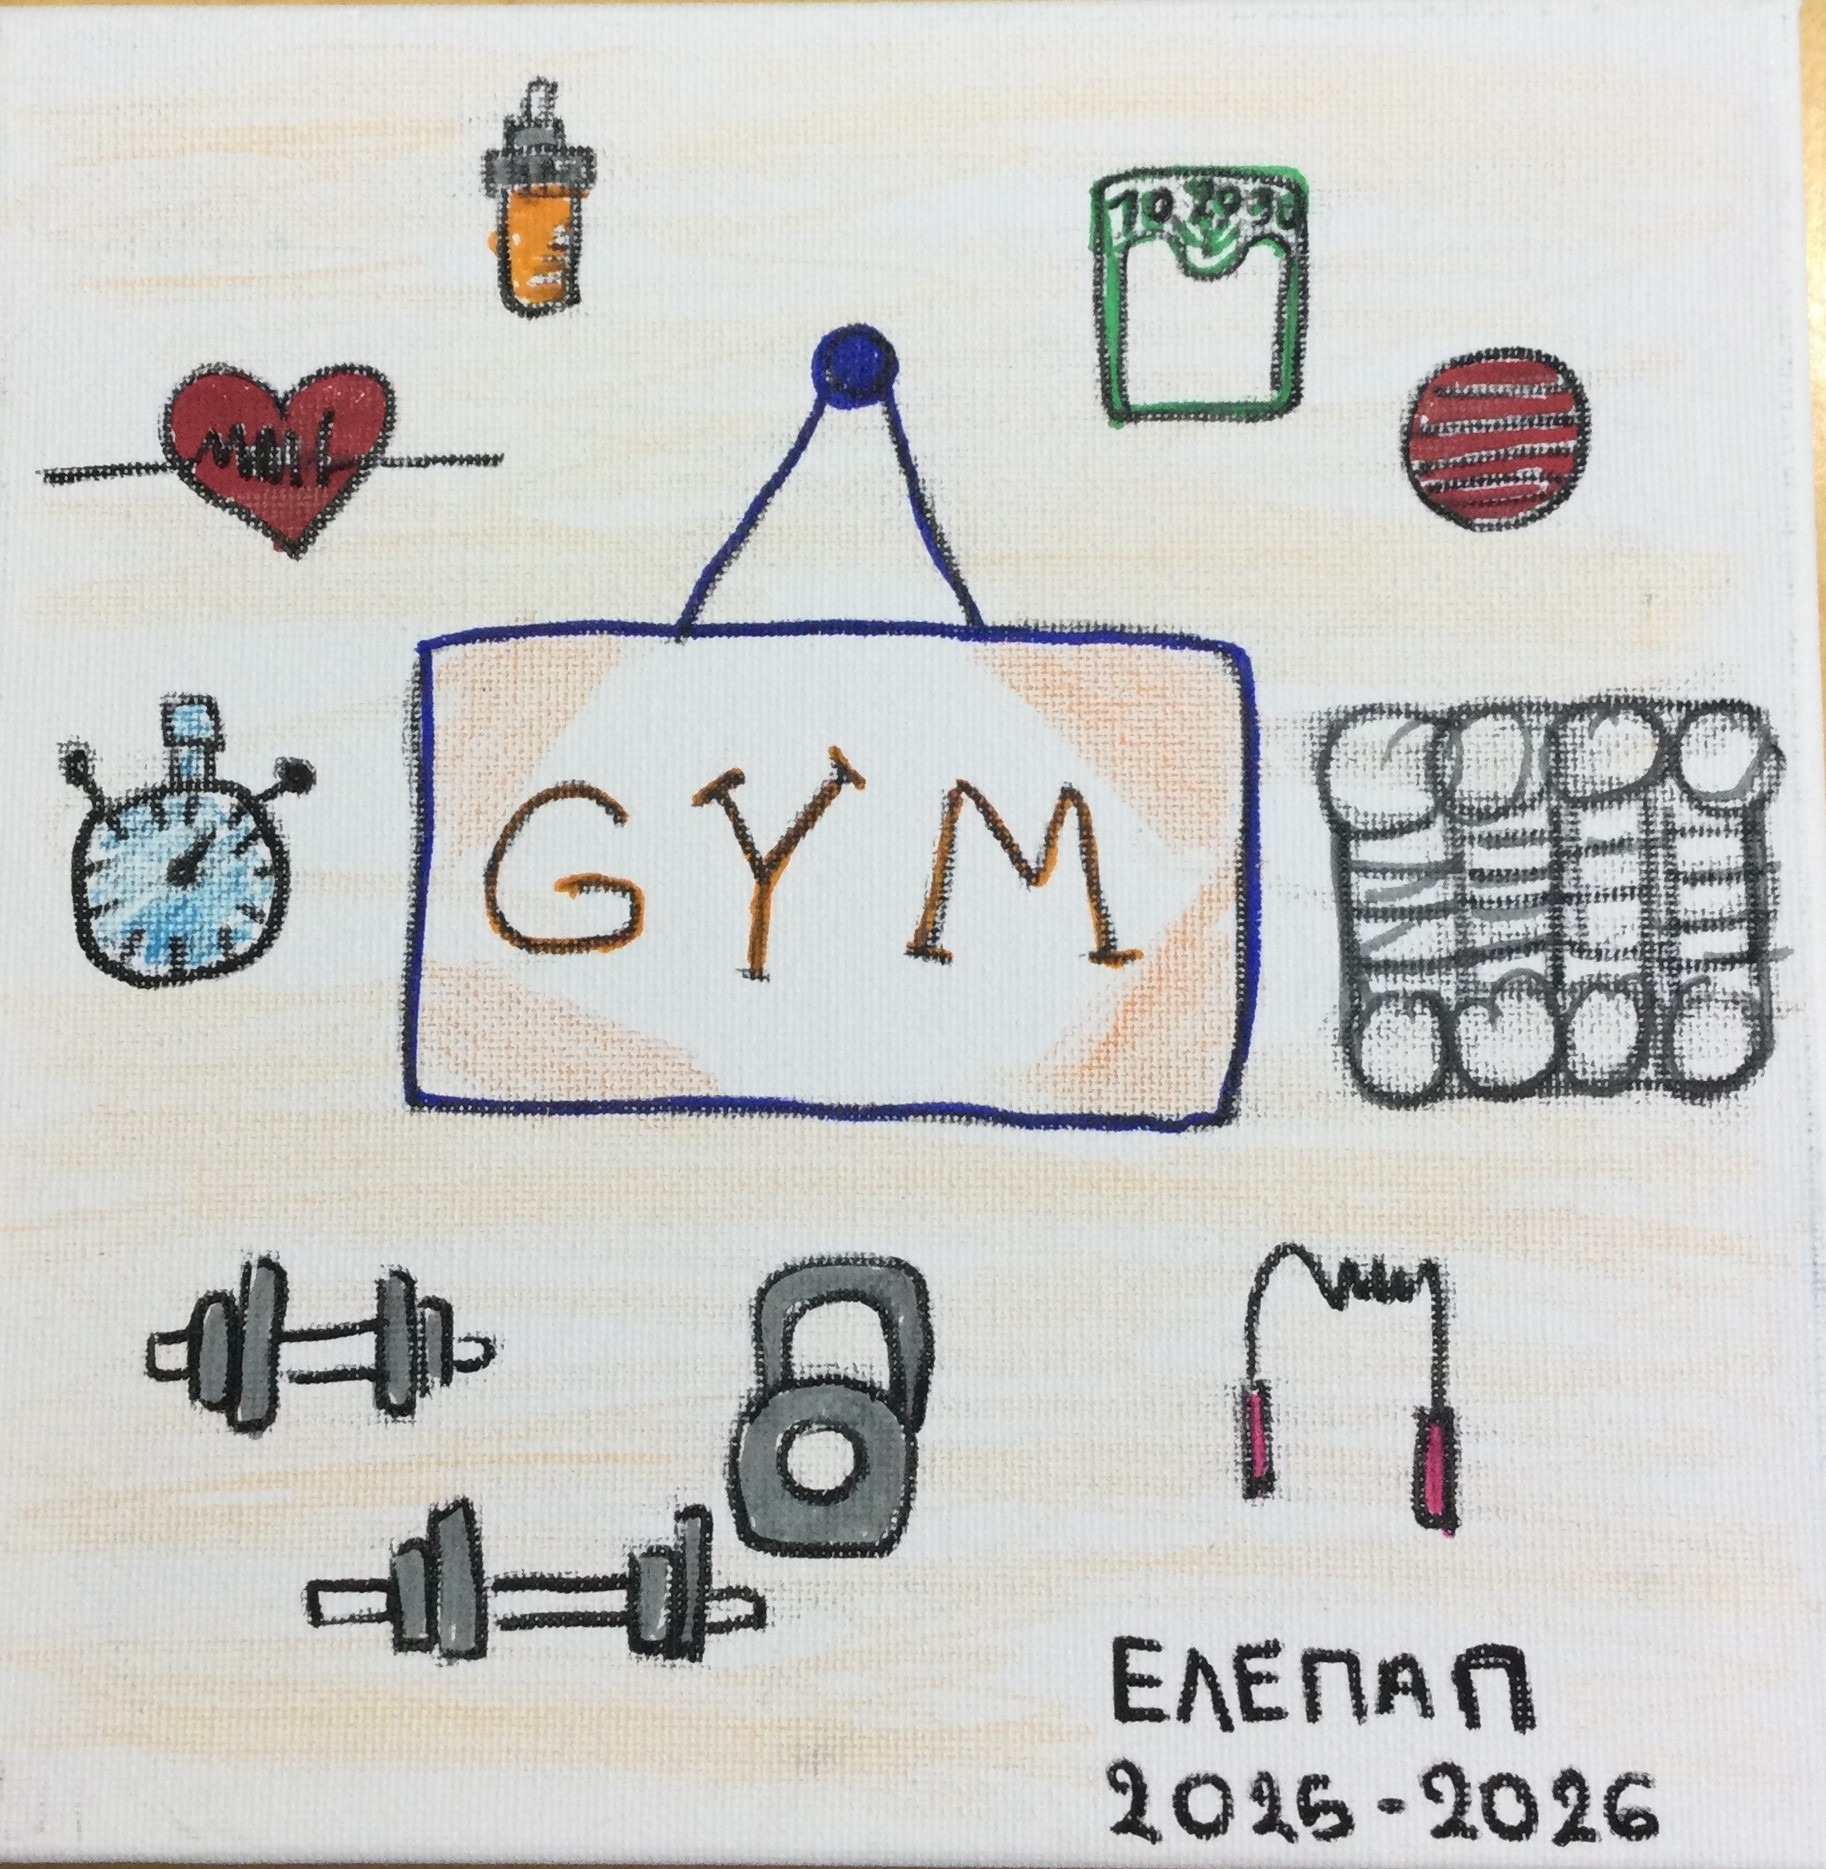 10 20 30
GYM
ΕΛΕΠΑΠ
2025-2026